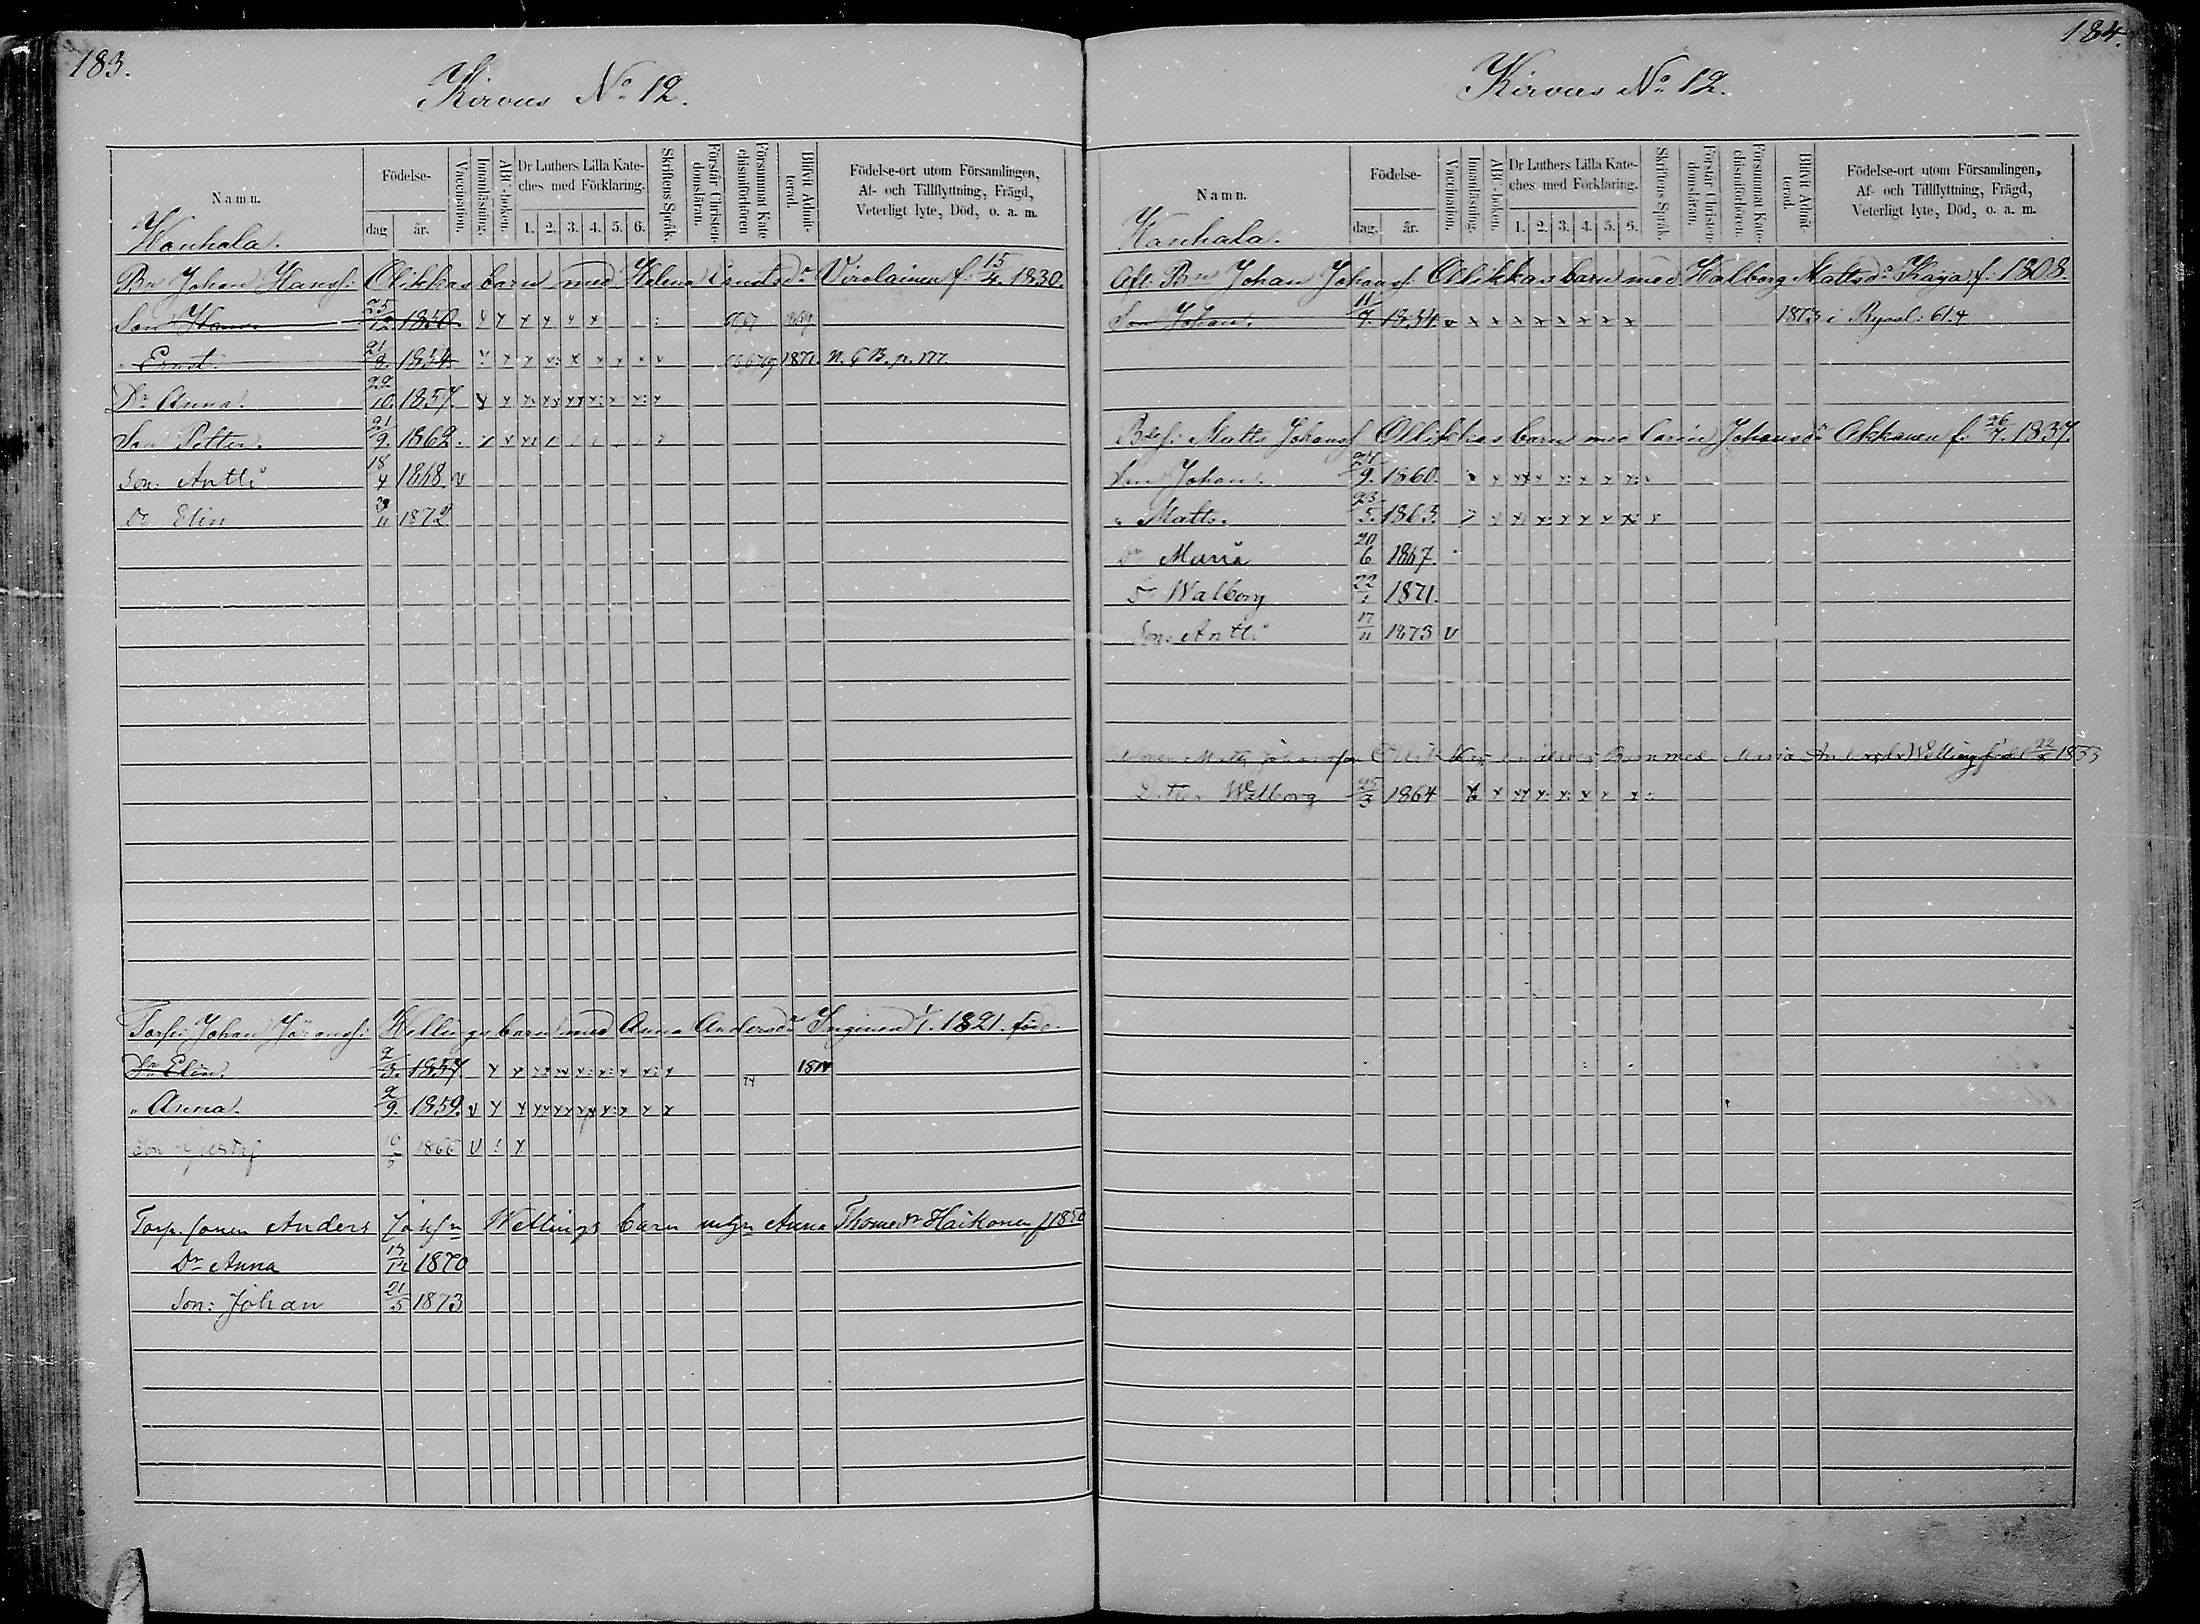 183.
Kirvus No 12.
Namn.
Födelse-
dag
år.
Vaccination.
Innanläsning.
ABC-boken.
Dr Luthers Lilla Kate-
ches med Förklaring.
1. 2. 3. 4. 5. 6.
Skriftens Språk.
Förstår Christen-
domsläran.
Försummat Kate
chismiförhören
Blivit Admit-
terad.
Födelse-ort utom Församlingen,
Af- och Tillflyttning, Frägd,
Veterligt lyte, Död, o. a. m.
Kanhala.
Bn Johan Hansf: Olikkas barn med Helena Ernstsdr Virolainen f. 15/4. 1830.
Son Hans. 25/12 1850. 1869
" Ernst. 21/8. 1854. 1871. N. G B. p. 177.
Dr Anna. 22/10. 1857.
Son Petter. 21/9. 1862.
Son: Antti 18/4 1868. v
Dr Elin 1872
Torp: Johan Göransf: Wellings barn med Anna Andersdr Inginen 1821. född.
Dr Elin. 2/3. 1857. 74
" Anna. 2/9. 1859. v
Son Gustaf 1866 v
Torp. sonen Anders Johsn Wellings barn Anna Thomasdr Haikonen f 1850
Dr Anna 1870
Son: Johan 21/5 1873
184.
Kirvus No 12.
Namn.
Födelse-
dag.
år.
Vaccination.
Innanläsning.
ABC-boken.
Dr Luthers Lilla Kate-
ches med Förklaring.
1. 2. 3. 4. 5. 6.
Skriftens Språk.
Förstår Christen-
domsläran.
Försummat Kate-
chismiförhören.
Blivit Admit-
terad.
Födelse-ort utom Församlingen,
Af- och Tillflyttning, Frägd,
Veterligt lyte, Död, o. a. m.
Kanhala.
Afl. Bn Johan Johansf: Ollikkas barn med Walborg Mattsdr Kaija f: 1808.
Son Johan. 11/7. 1854. v 1873 i Ryssl: 61.4
Matts Johansf Ollikkas barn med Carin Johansdr Akkanen f. 26/7. 1837.
Son Johan. 27/9. 1860.
" Matts. 23/5. 1863.
Dr Maria 20/6 1867.
Dr Walborg 22/1 1871.
Son: Antti 17/11 1873 v
Matts Johansson Ollikkas Barn med Maria Andersdr Welling född 1833
Dotter Walborg 25/3 1864